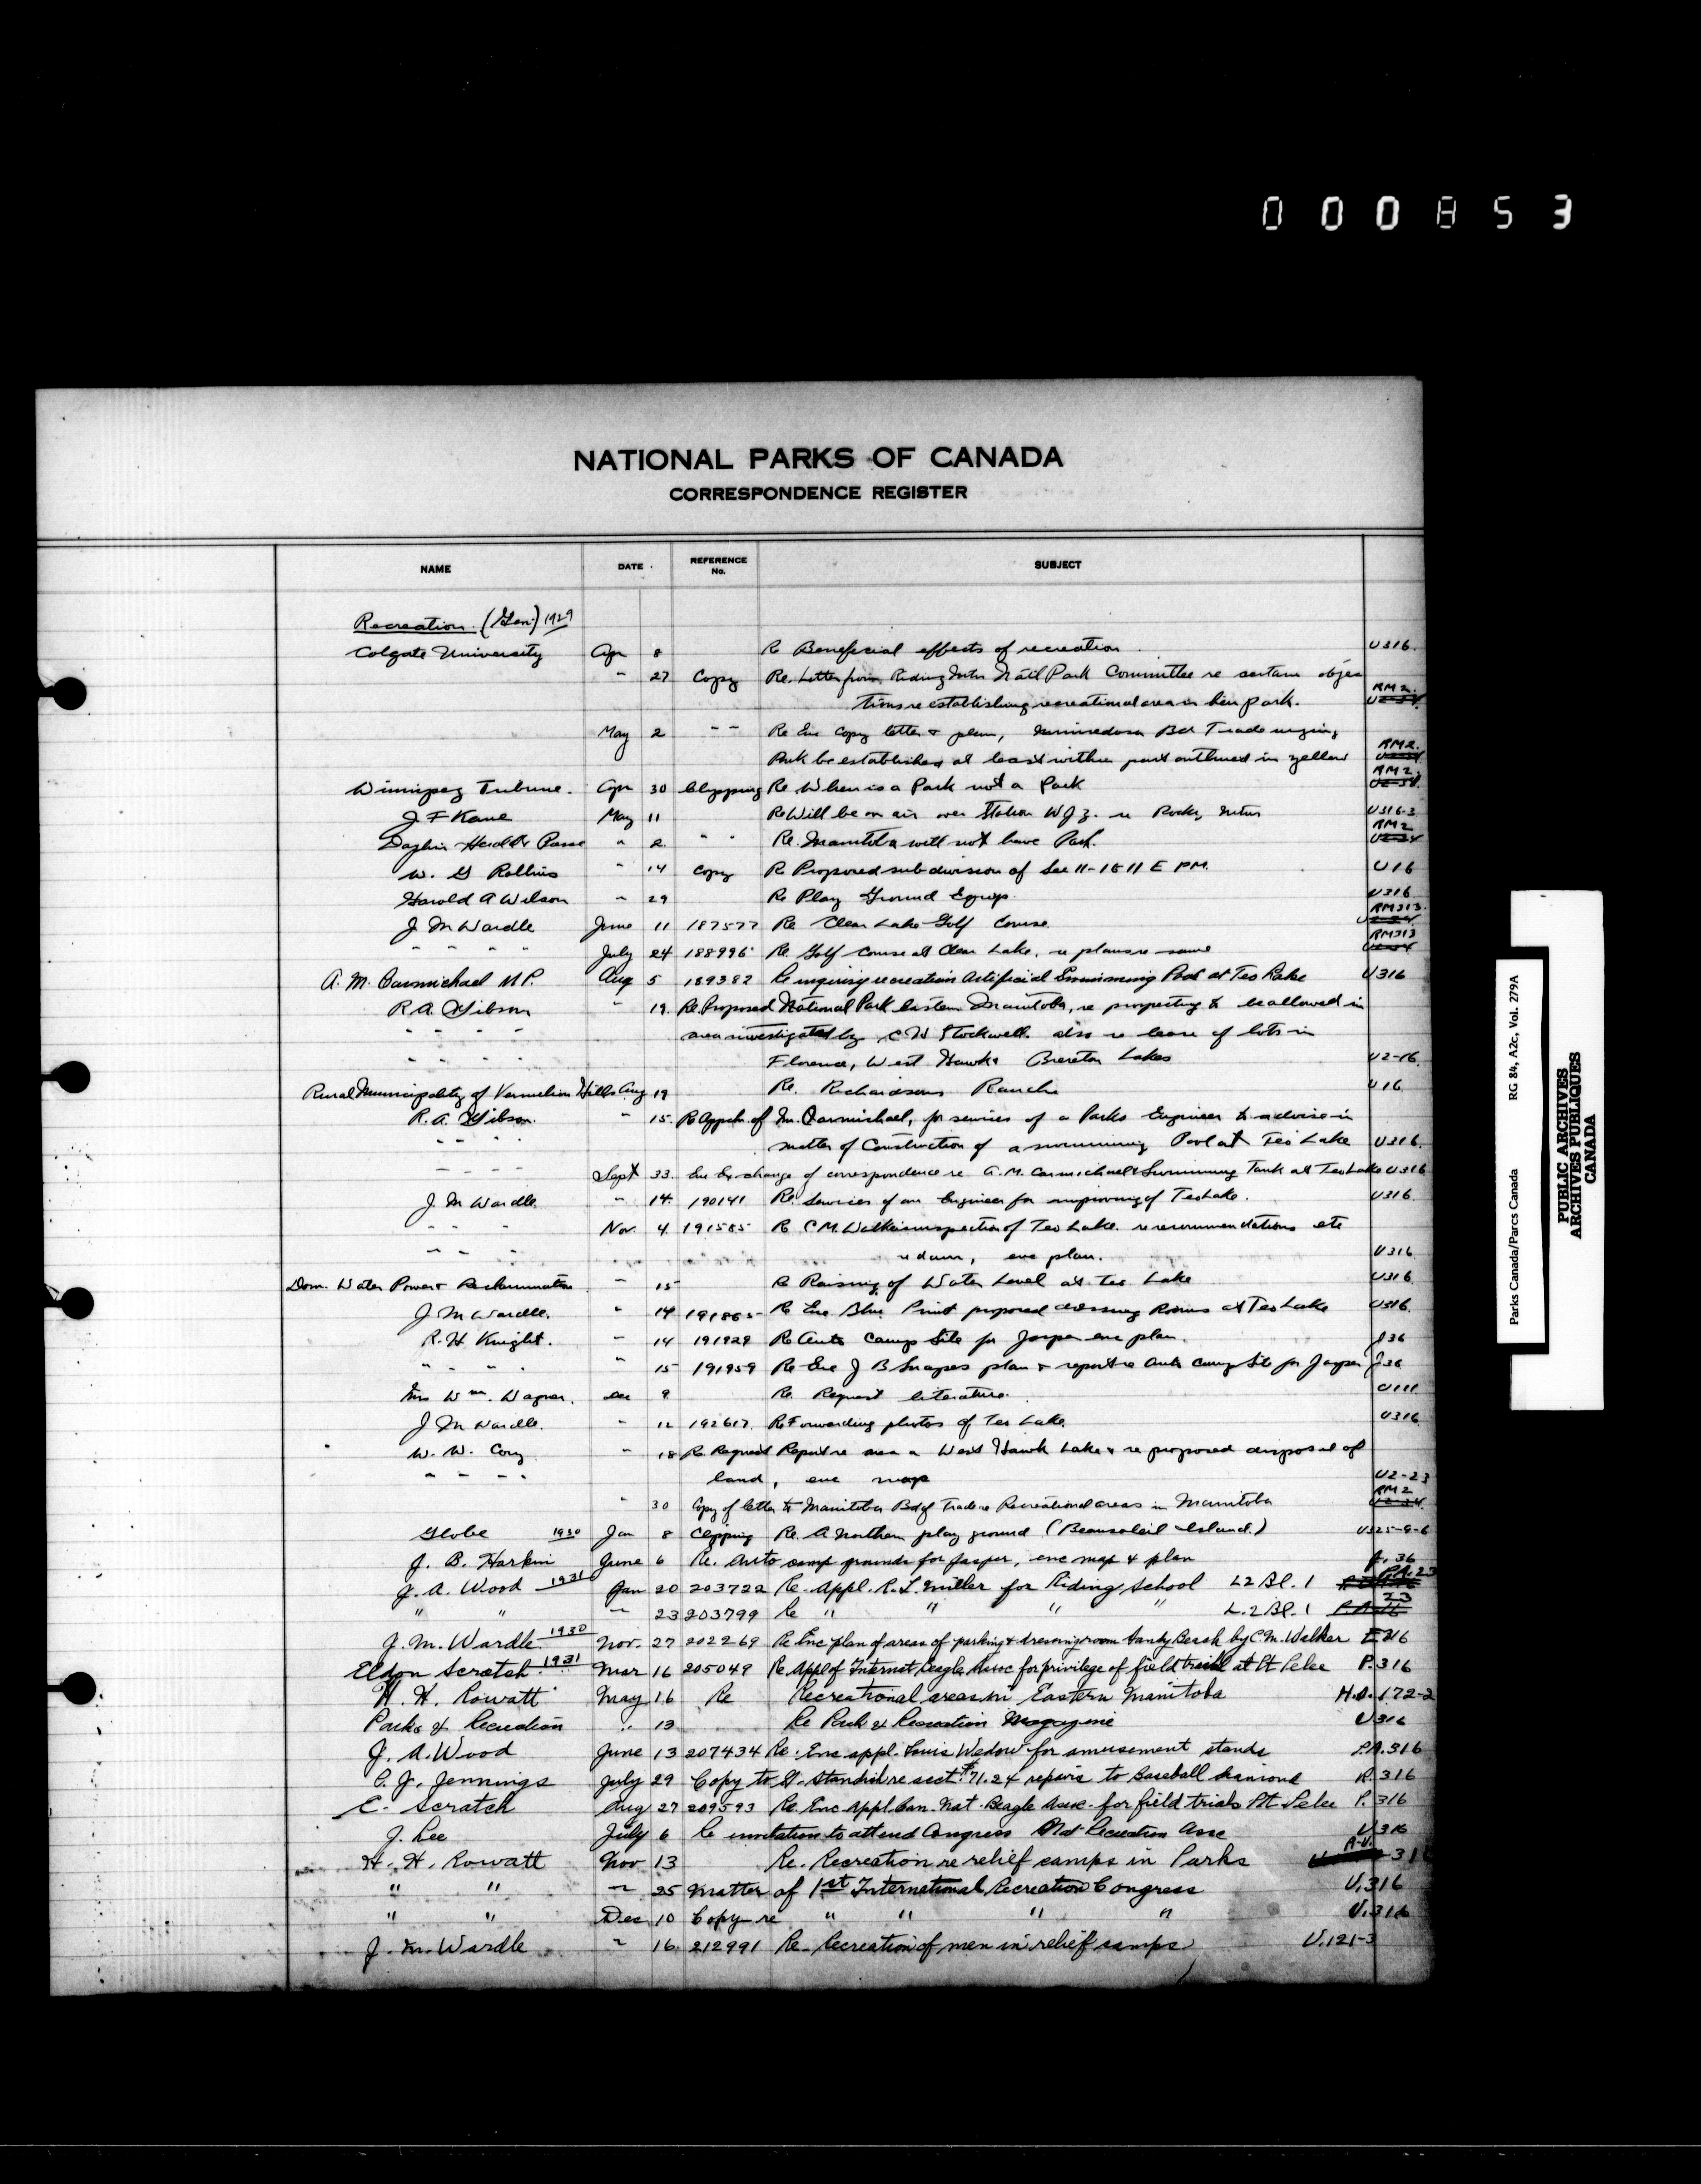 0 0 0 8 5 3
NATIONAL PARKS OF CANADA
CORRESPONDENCE REGISTER
NAME DATE REFERENCE No. SUBJECT
Recreation (Gen.) 1929
Colgate University Apr 8 Re Beneficial effects of recreation U316.
" 27 Copy Re. Letter from Riding Mtn Nat'l Park Committee re certain objec
tions re establishing recreational area in lieu park. RM2.
May 2 " " Re Enc Copy letter & plan, Minnedosa Bd Trade urging
Park be established at least within part outlined in yellow RM2.
Winnipeg Tribune. Apr 30 Clipping Re When is a Park not a Park RM2.
J F Kane May 11 Re Will be on air over Station WJZ. re Rocky Mtns U316-3
Dauphin Herald & Press " 2. " " Re. Manitoba will not have Park. RM2
W. G Rollins " 14 Copy Re Proposed subdivision of Sec 11-18 11 E PM. U16
Harold A Wilson " 29 Re Play Ground Equip. U316
J M Wardle June 11 187577 Re Clear Lake Golf Course RM313.
" " " " July 24 188996 Re. Golf Course at Clear Lake, re plans re same RM313
A. M. Carmichael M.P. Aug 5 189382 Re inquiry recreation Artificial Swimming Pool at Teo Lake U316
R A Gibson " 19. Re. Proposed National Park Eastern Manitoba, re prospecting to be allowed in
" " " " area investigated by C H Stockwell. also re lease of lots in
" " " " Florence, West Hawk & Brereton Lakes U2-16
Rural Municipality of Vermilion Hills Aug 19 Re. Richardsons Ranche U16
R. A. Gibson. " 15. Re Appln of Mr. Carmichael, for services of a Parks Engineer to advise in
" " " " matter of Construction of a swimming Pool at Teo Lake U316.
" " " " Sept 33. Enc Exchange of correspondence re A. M. Carmichael & Swimming Tank at Teo Lake U316
J. M Wardle. " 14. 190141 Re Services of an Engineer for improving of Teo Lake. U316.
" " " Nov. 4. 191585 Re C M. Walker inspection of Teo Lake. re recommendations etc
" " " re dam, enc plan. U316
Dom. Water Power & Reclamation " 15 Re Raising of Water Level at Teo Lake U316.
J. M Wardle. " 14 191865 Re Enc Blue Print proposed dressing Rooms at Teo Lake U316.
R. H. Knight. " 14 191929 Re Auto Camp Site for Jasper enc plan. J36
" " " " " 15 191959 Re Enc J B Snapes plan & report re Auto Camp Site for Jasper J36
Mrs Wm. Wagner. Dec 9 Re. Request literature. U111
J M Wardle. " 12 192617. Re Forwarding photos of Teo Lake. U316
W. W. Cory " 18 Re Request Report re area a West Hawk Lake & re proposed disposal of
" " " " land, enc map U2-23
" 30 Copy of letter to Manitoba Bd of Trade re Recreational areas in Manitoba RM2
Globe 1930 Jan 8 Clipping Re. A Northern play ground (Beausoleil Island.) U325-9-6
J. B. Harkin June 6 Re. Auto camp grounds for Jasper, enc map & plan J. 36
J. A. Wood 1931 Jan 20 203722 Re. Appl. R. L. Miller for Riding School L2 Bl. 1 P.A. 23
" " " 23 203799 Re " " " " L. 2 Bl. 1 23
J. M. Wardle 1930 Nov. 27 202269 Re Enc plan of areas of parking & dressing room Sandy Beach by C. M. Walker E 316
Eldon Scratch 1931 Mar 16 205049 Re Appl of Internat Beagle Assoc for privilege of field trial at Pt Pelee P. 316
H. H. Rowatt May 16 Re Recreational areas in Eastern Manitoba H.A. 172-2
Parks & Recreation " 13 Re Park & Recreation Magazine U316
J. A. Wood June 13 207434 Re. Enc appl. Louis Wedow for amusement stands P.A. 316
P. J. Jennings July 29 Copy to G. Standish re acct. $71.24 repairs to Baseball diamond R. 316
E. Scratch Aug 27 209593 Re. Enc Appl. Can. Nat. Beagle Assoc. for field trials Pt. Pelee P. 316
J. Lee July 6 Re invitation to attend Congress Nat Recreation Assc U 316
H. H. Rowatt Nov 13 Re. Recreation re relief camps in Parks
" " " 25 Matter of 1st International Recreation Congress U. 316
" " Dec 10 Copy re " " " " U. 316
J. M. Wardle " 16. 212991 Re. Recreation of men in relief camps U. 121-3
Parks Canada/Parcs Canada RG 84, A2c, Vol. 279A
PUBLIC ARCHIVES
ARCHIVES PUBLIQUES
CANADA